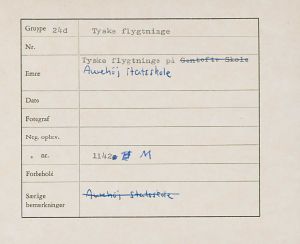 Gruppe 24d Tyske flygtninge
Nr.
Tyske flygtninge på Gentofte Skole
Emne Aurehøj statsskole
Dato
Fotograf
Neg. ophev.
" nr. 1142 M
Forbehold
Særlige Aurehøj statsskole
bemærkninger